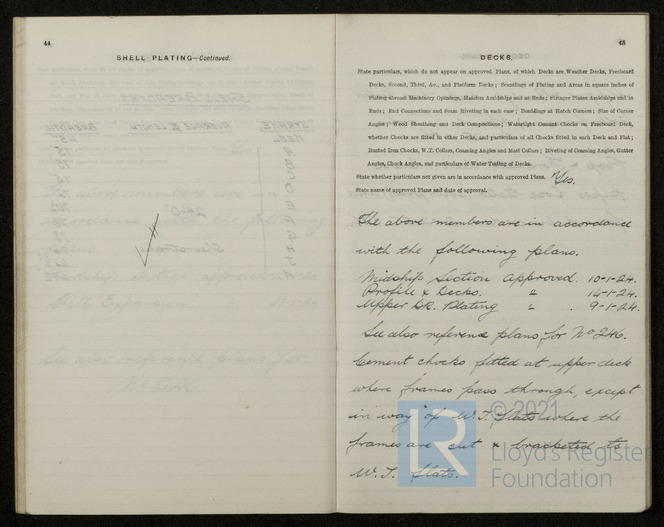 44
SHELL PLATING—Continued.
45
DECKS.
State particulars, which do not appear on approved Plans, of which Decks are Weather Decks, Freeboard
Decks, Second, Third, &c., and Platform Decks; Scantlings of Plating and Areas in square inches of
Plating abreast Machinery Openings, Hatches Amidships and at Ends; Stringer Plates Amidships and at
Ends; End Connections and Seam Riveting in each case; Doublings at Hatch Corners; Size of Corner
Angles; Wood Sheathing and Deck Compositions; Watertight Cement Chocks on Freeboard Deck,
whether Chocks are fitted in other Decks, and particulars of all Chocks fitted in each Deck and Flat;
Rusted Iron Chocks, W.T. Collars, Coaming Angles and Matt Collars; Riveting of Coaming Angles, Gutter
Angles, Chock Angles, and particulars of Water Testing of Decks.
State whether particulars not given are in accordance with approved Plans. Yes.
State name of approved Plans and date of approval.
The above members are in accordance
with the following plans.
Midship Section approved. 10-1-24.
Profile & Decks. " 14-1-24.
Upper Dk. Plating " . 9-1-24.
See also reference plans for No 246.
Cement chocks fitted at upper deck
where frames pass through, except
in way of W.T. flats where the
frames are cut & bracketed to
W.T. flats.
© 2021
Lloyd's Register
Foundation
LR